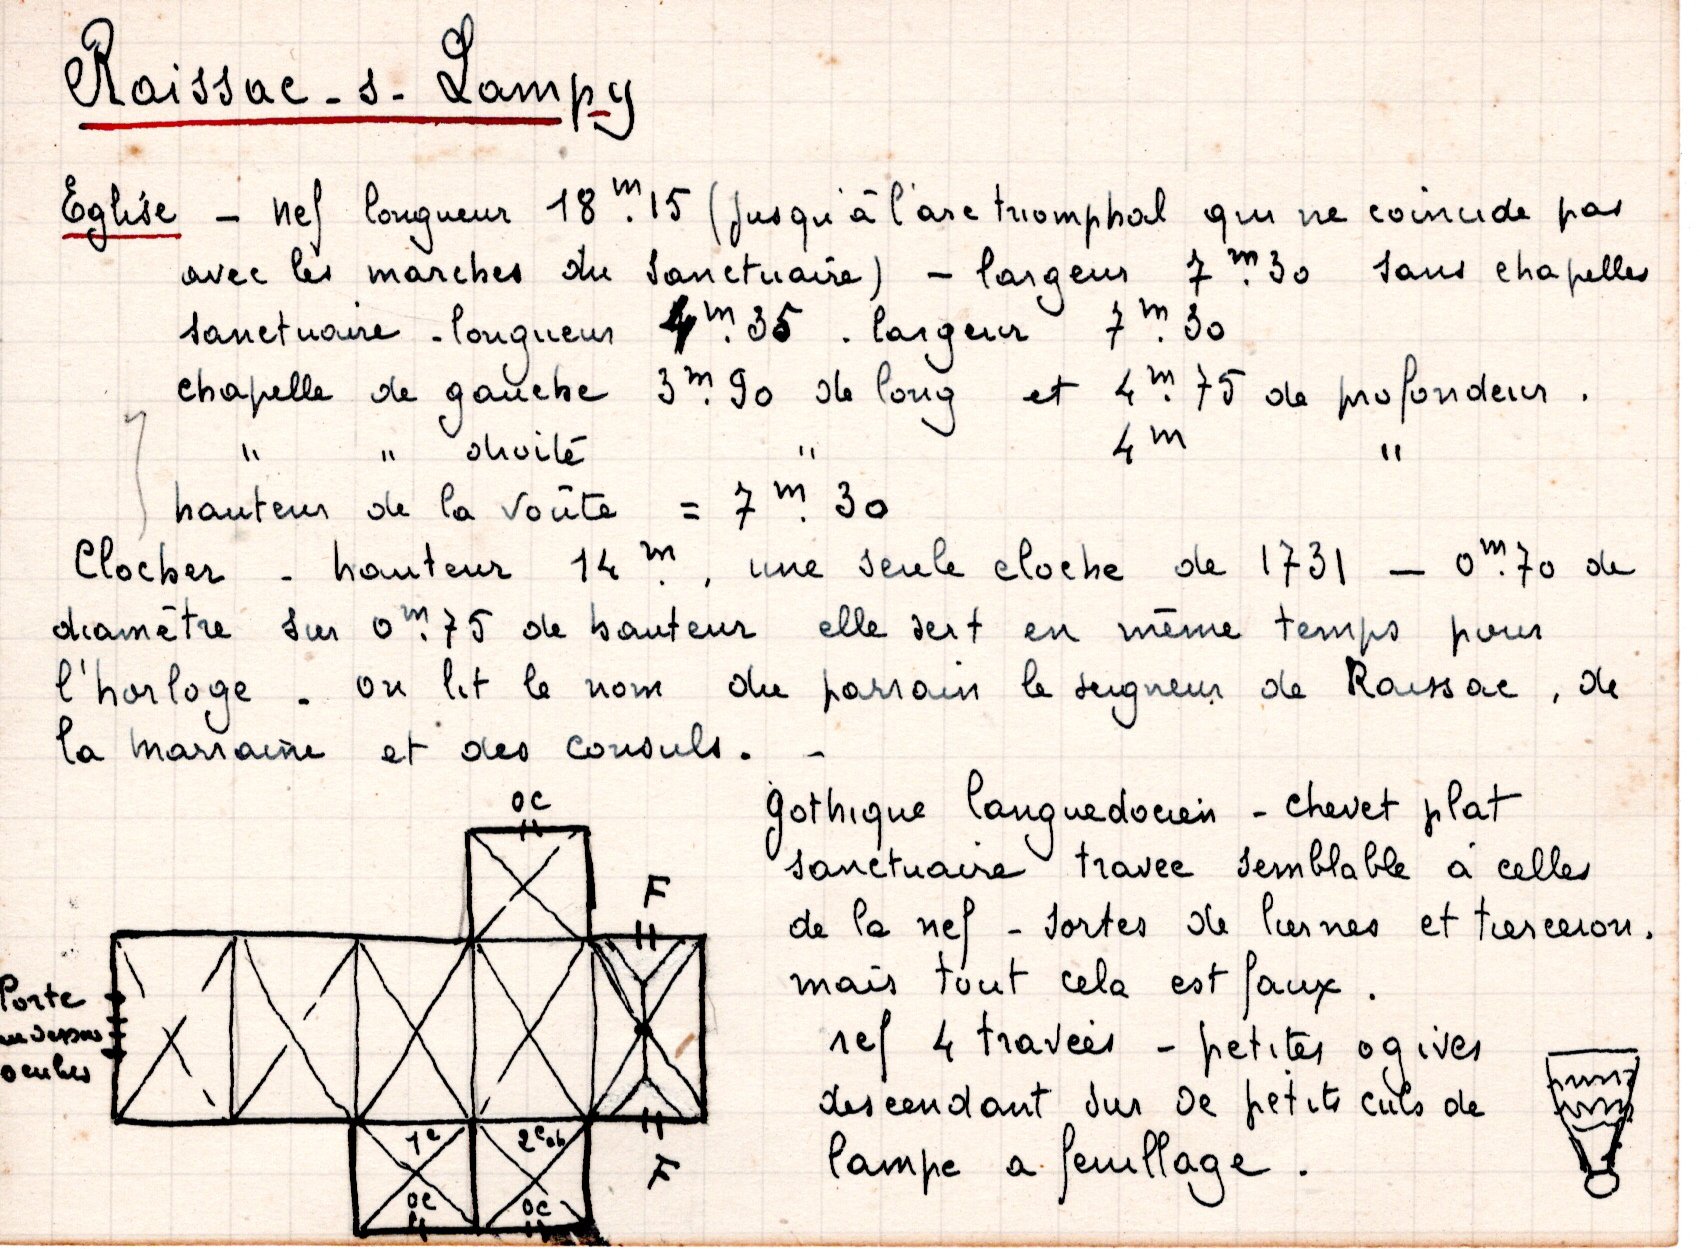 Raissac-s-Lampy
Eglise - nef longueur 18m.15 (jusqu'à l'arc triomphal qui ne coincide pas
avec les marches du sanctuaire) - largeur 7m.30 sans chapelles
sanctuaire - longueur 4m.35 . largeur 7m.30
chapelle de gauche 3m.90 de long et 4m.75 de profondeur .
" " droite " 4m "
hauteur de la voûte = 7m.30
Clocher - hauteur 14m. , une seule cloche de 1731 - 0m.70 de
diamètre sur 0m.75 de hauteur elle sert en même temps pour
l'horloge . on lit le nom du parrain le seigneur de Raissac , de
la marraine et des consuls . -
oc
F
Porte
au dessus
oculus
1e
2e ch
oc
oc
F
gothique languedocien - chevet plat
sanctuaire travee semblable à celles
de la nef - sortes de liernes et tierceron .
mais tout cela est faux .
nef 4 travées - petites ogives
descendant sur de petits culs de
lampe a feuillage .